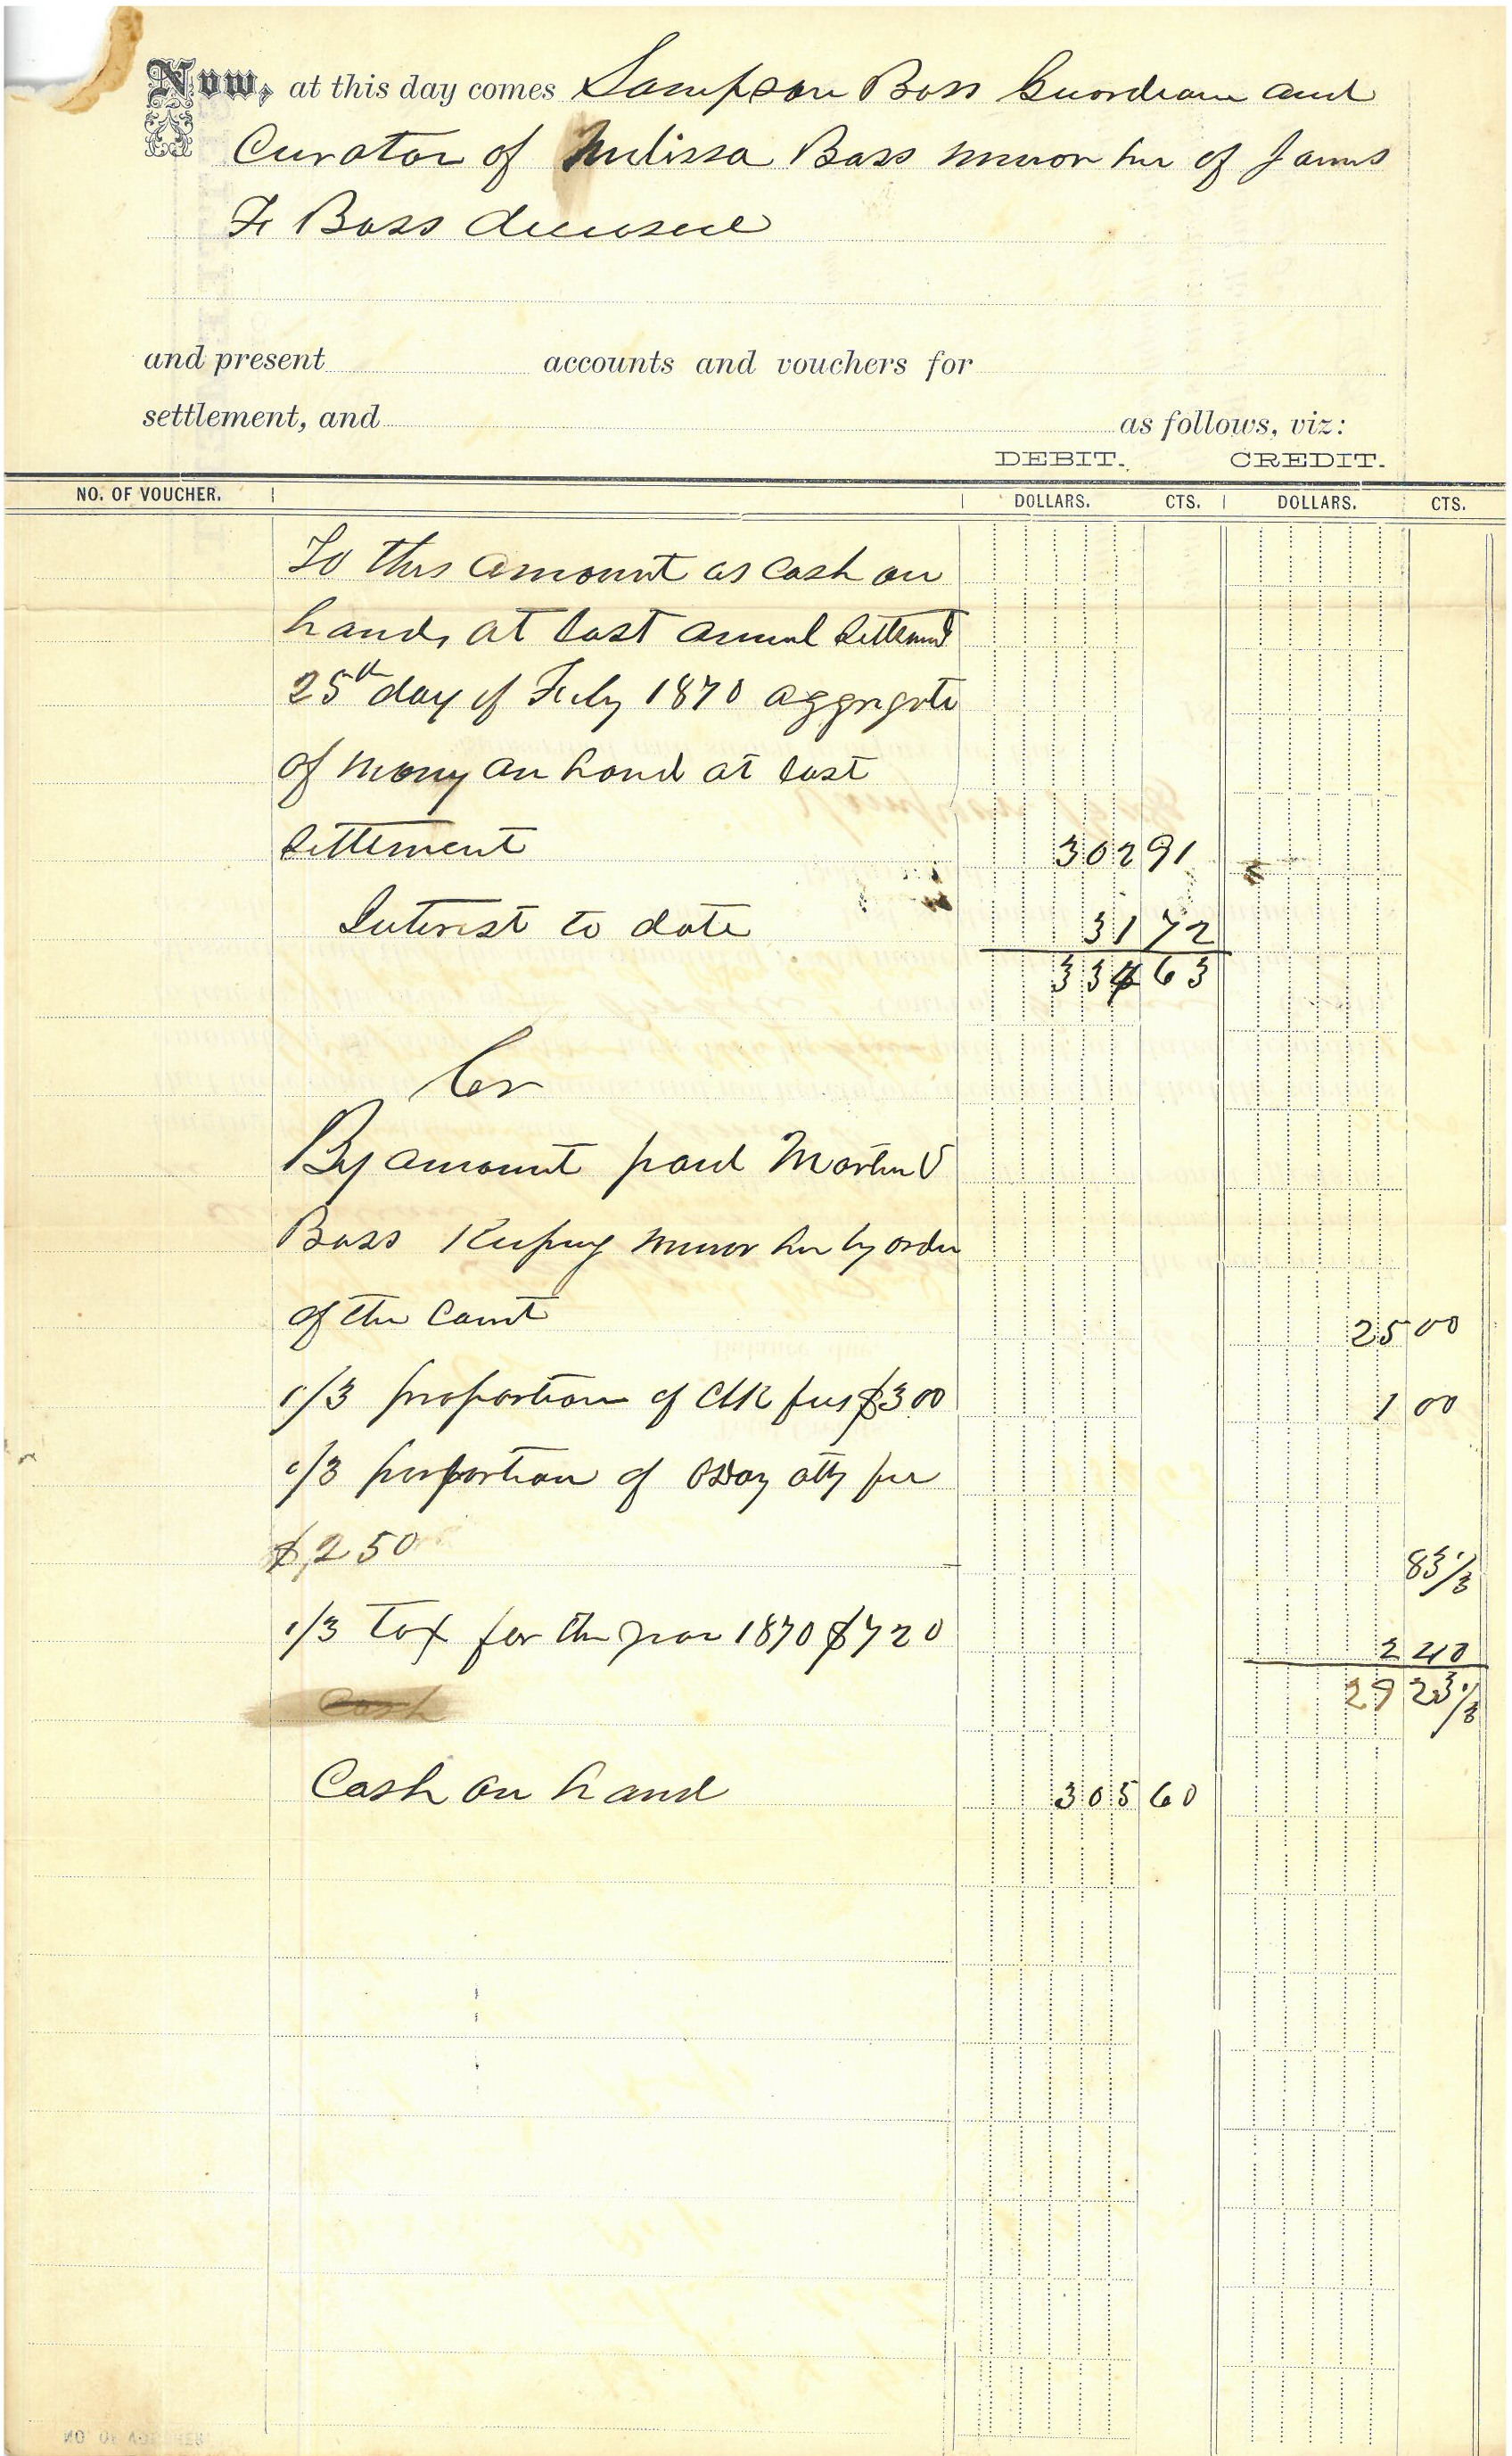 Now, at this day comes Sampson Bass Guardian and
Curator of Melissa Bass minor heir of James
F Bass deceased
and present accounts and vouchers for
settlement, and as follows, viz:
DEBIT. CREDIT.
NO. OF VOUCHER. DOLLARS. CTS. DOLLARS. CTS.
To this amount as cash on
hands at last annual Settlement
25th day of July 1870 aggregate
of money on hand at last
Settlement 302 91
Interest to date 31 72
334 63
Cr
By amount paid Martin V
Bass Keeping minor heir by order
of the Court 25 00
1/3 proportion of Clk fees $3 00 1 00
1/3 proportion of atty fee
$2 50 83 1/3
1/3 Tax for the year 1870 $7 20 2 40
Cash 29 23 1/3
Cash on hand 305 60
NO. OF VOUCHER